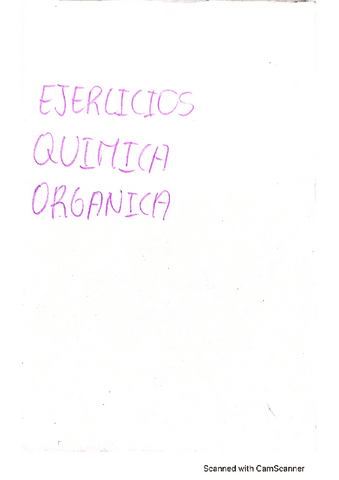 EJERCICIOS
QUIMICA
ORGANICA
Scanned with CamScanner